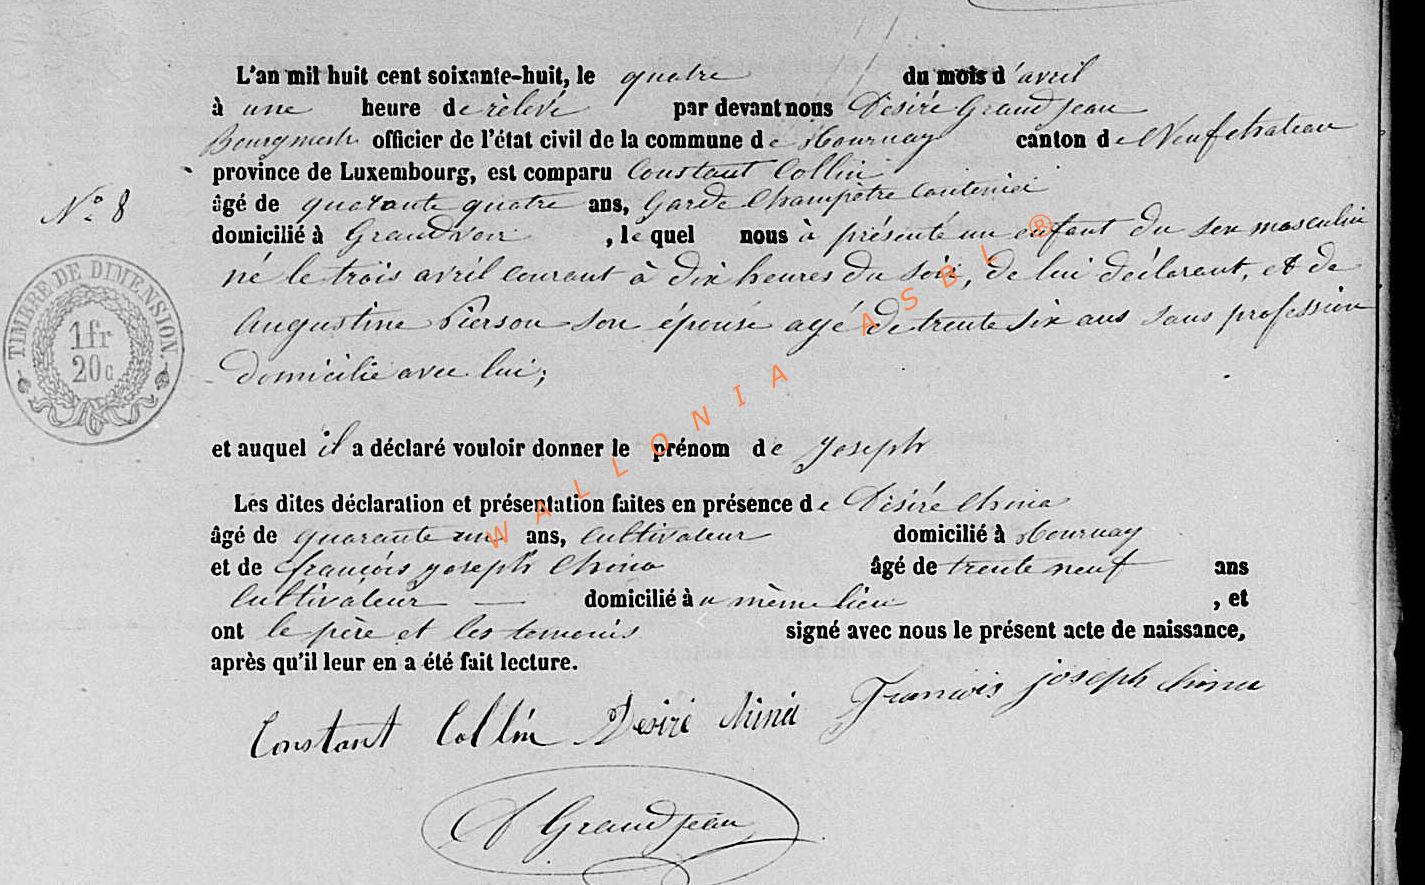 L'an mil huit cent soixante-huit, le quatre du mois d'avril
à une heure de rèlevé par devant nous Désiré Grandjean
Bourgmestre officier de l'état civil de la commune de Tournay canton de Neufchateau
province de Luxembourg, est comparu Constant Collin
N° 8
âgé de quarante quatre ans, Garde Champètre
domicilié à Grandvoir, lequel nous à présenté un enfant du sex masculin
né le trois avril courant à dix heures du soir, de lui déclarant, et de
Augustine Pierson son épouse agé de trente six ans sans profession
domicilié avec lui;
TIMBRE DE DIMENSION.
1fr
20c
et auquel il a déclaré vouloir donner le prénom de Joseph
Les dites déclaration et présentation faites en présence de Désiré China
âgé de quarante un ans, cultivateur domicilié à Tournay
et de françois joseph China âgé de trente neuf ans
Cultivateur — domicilié à u même lieu, et
ont le père et les temouis signé avec nous le présent acte de naissance,
après qu'il leur en a été fait lecture.
Constant Collin Desiré China François joseph China
D Grandjean
WALLONIA ASBL ®